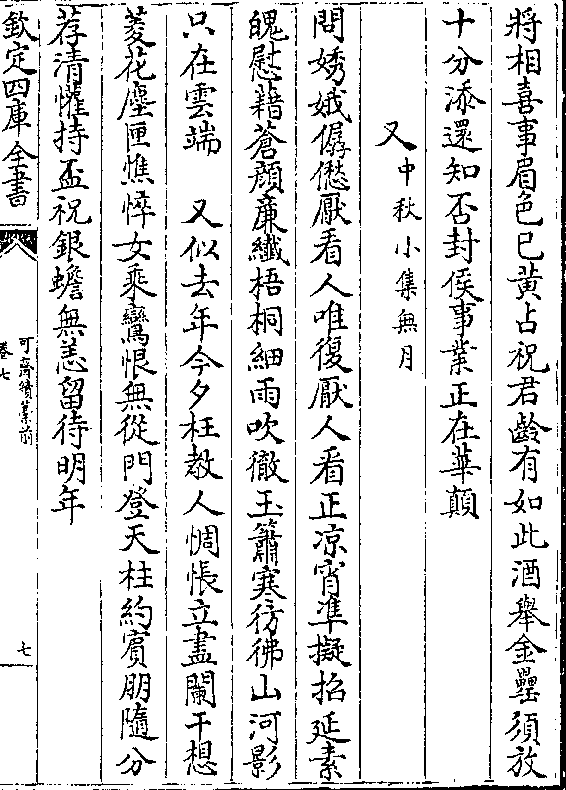 將相喜事眉色已黃占祝君齡有如此酒舉金罍須放
十分添還知否封侯事業正在華顛
又中秋小集無月
問嫦娥僝僽厭看人唯復厭人看正凉宵凖擬招延素
魄慰藉蒼顔亷纎梧桐細雨吹徹玉簫寒彷彿山河影
只在雲端　又似去年今夕枉教人惆悵立盡闌干想
菱花塵匣憔悴女乘鸞恨無從門登天柱約賓朋隨分
荐清懽持盃祝銀蟾無恙留待明年
欽定四庫全書
可齋續藁前
卷七
七